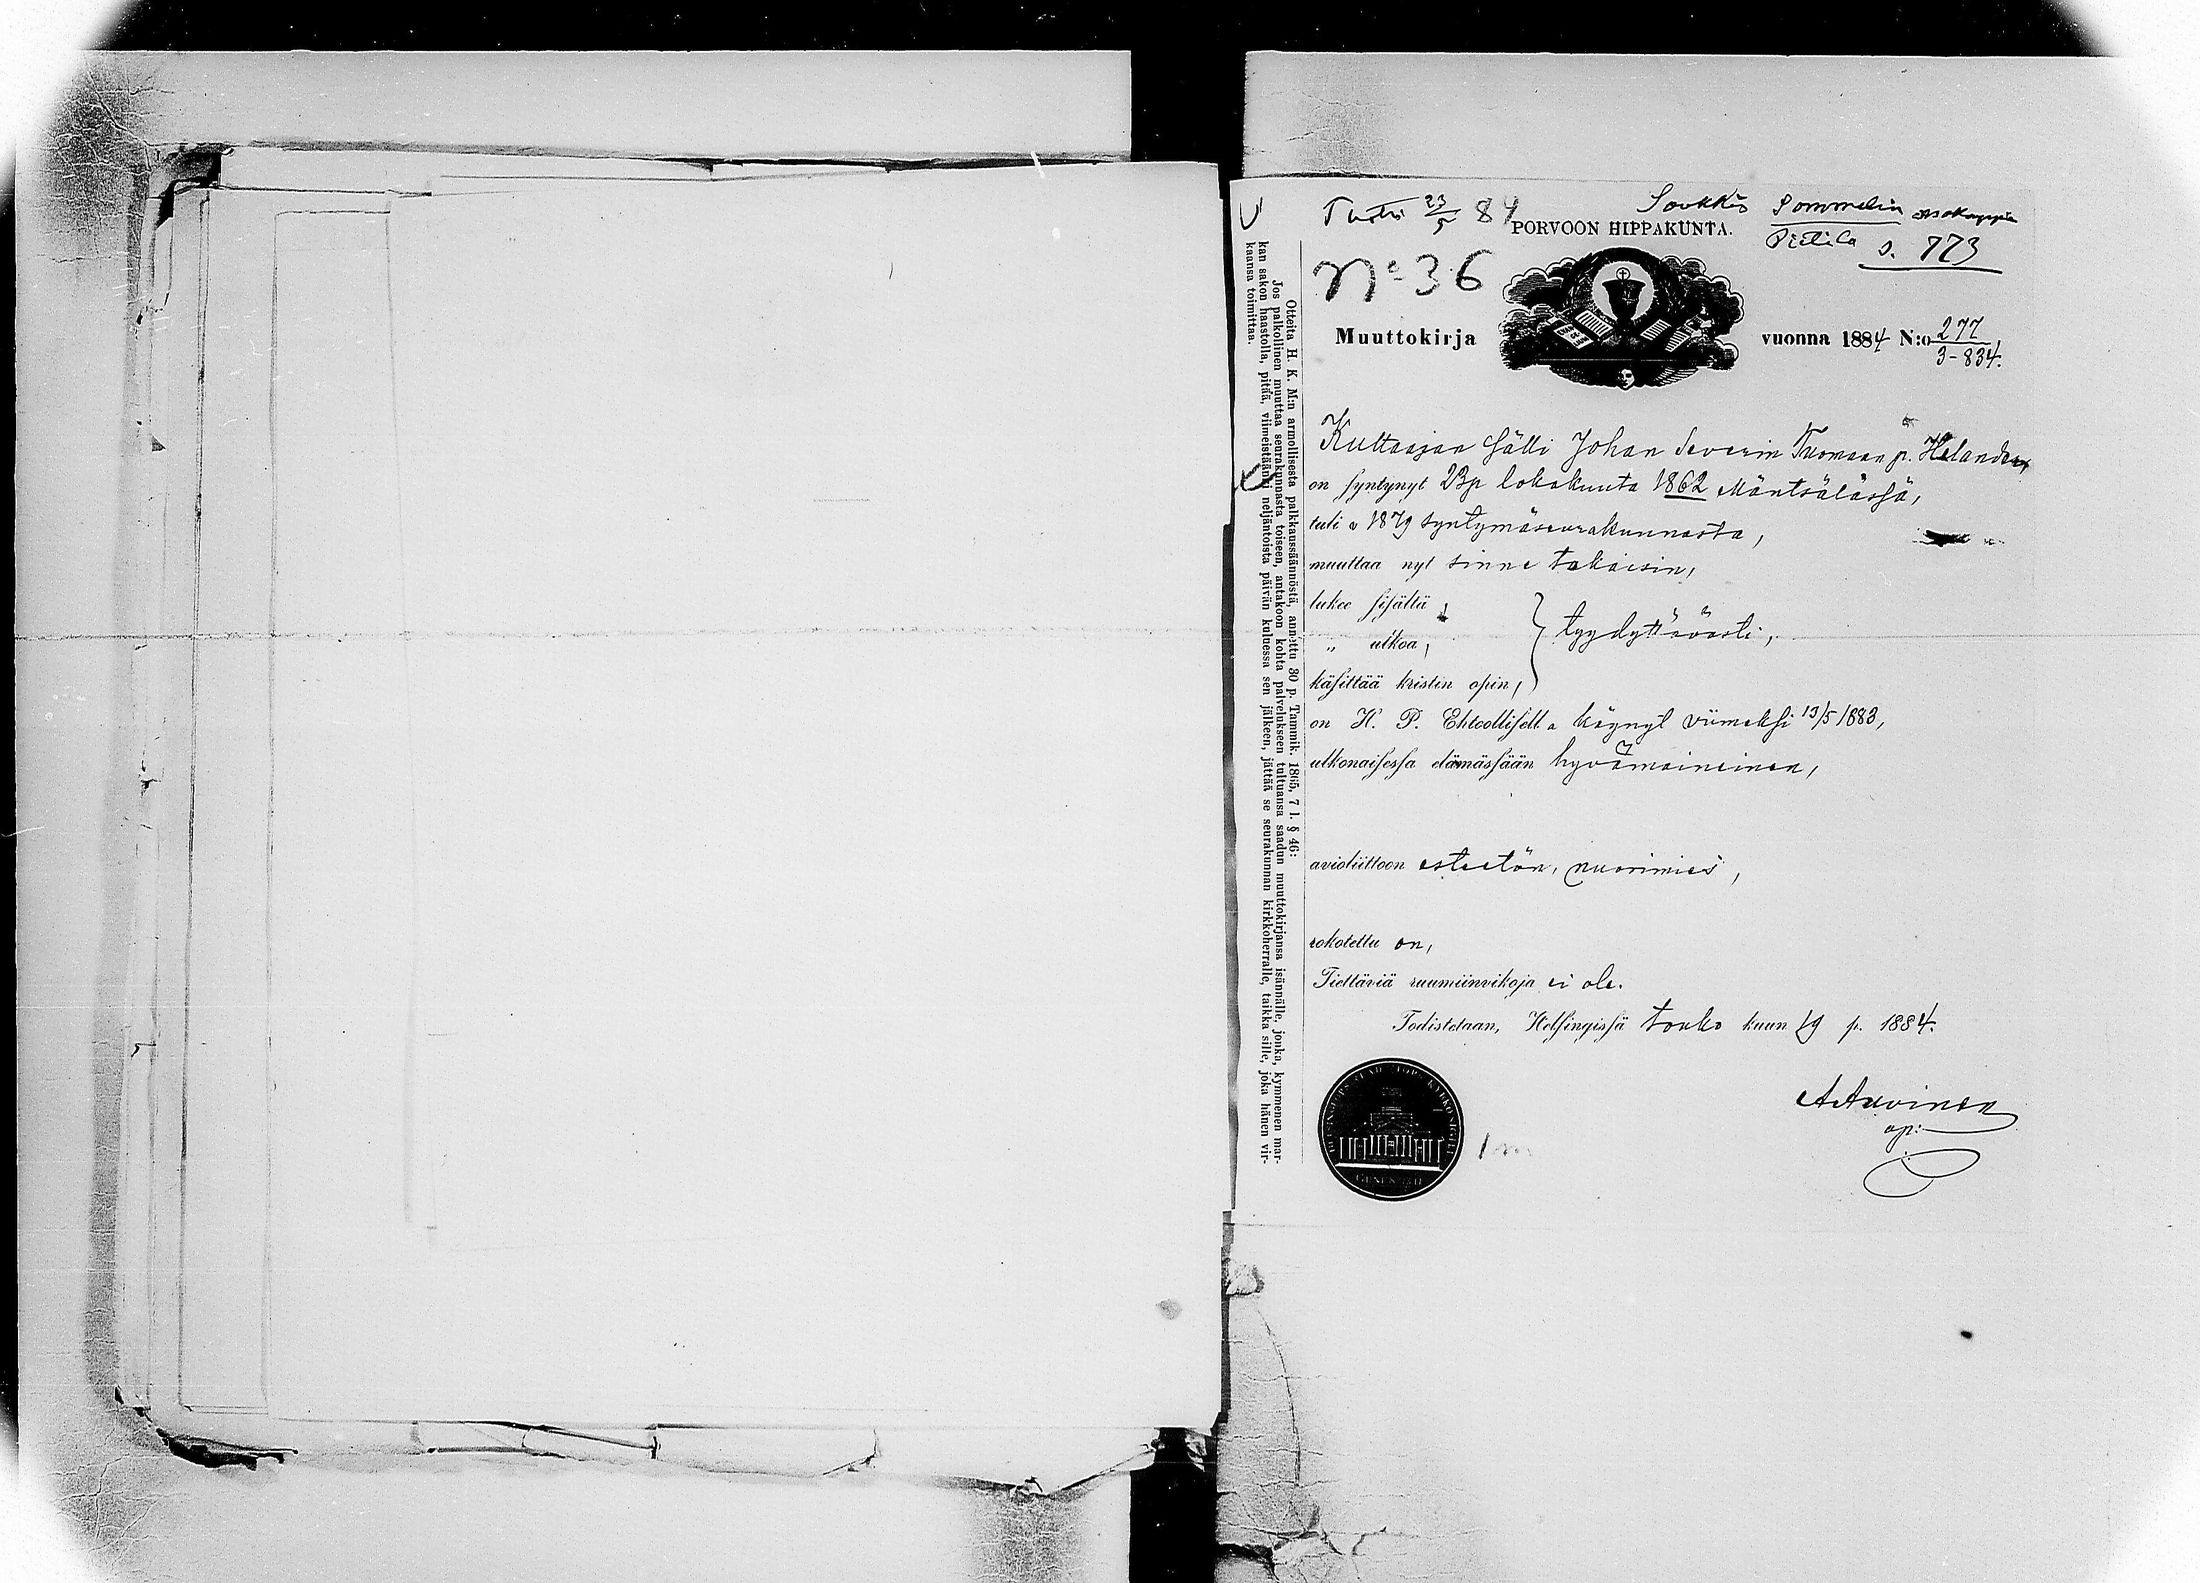 Tuotu 23/5 84
Soukkis Sommelin
Pietila s. 773
PORVOON HIPPAKUNTA.
No 36
Muuttokirja vuonna 1884 N:o 277
3-834.
Kultaajan sälli Johan Severin Tuomaan p. Helander,
on syntynyt 23 p lokakuuta 1862 Mäntsälässä,
tuli v 1879 syntymäseurakunnasta,
muuttaa nyt sinne takaisin,
lukee sisältä,
„ ulkoa,
tyydyttävästi,
käsittää kristin opin,
on H. P. Ehtoollisella käynyt viimeksi 13/5 1883,
ulkonaisessa elämässään hyvämaineinen,
avioliittoon esteetön, nuorimies,
rokotettu on,
Tiettäviä ruumiinvikoja ei ole.
Todistetaan, Helsingissä touko kuun 19 p. 1884.
A Auvinen
ap:
Otteita H. K. M:n armollisesta palkkaussäännöstä, annettu 30 p. Tammik. 1865, 7 l. § 46:
Jos palkollinen muuttaa seurakunnasta toiseen, antakoon kohta palvelukseen tultuansa saadun muuttokirjansa isännälle, jonka, kymmenen mar-
kan sakon haastolla, pitää, viimeistäänki neljäntoista päivän kuluessa sen jälkeen, jättää se seurakunnan kirkkoherralle, taikka sille, joka hänen vir-
kaansa toimittaa.